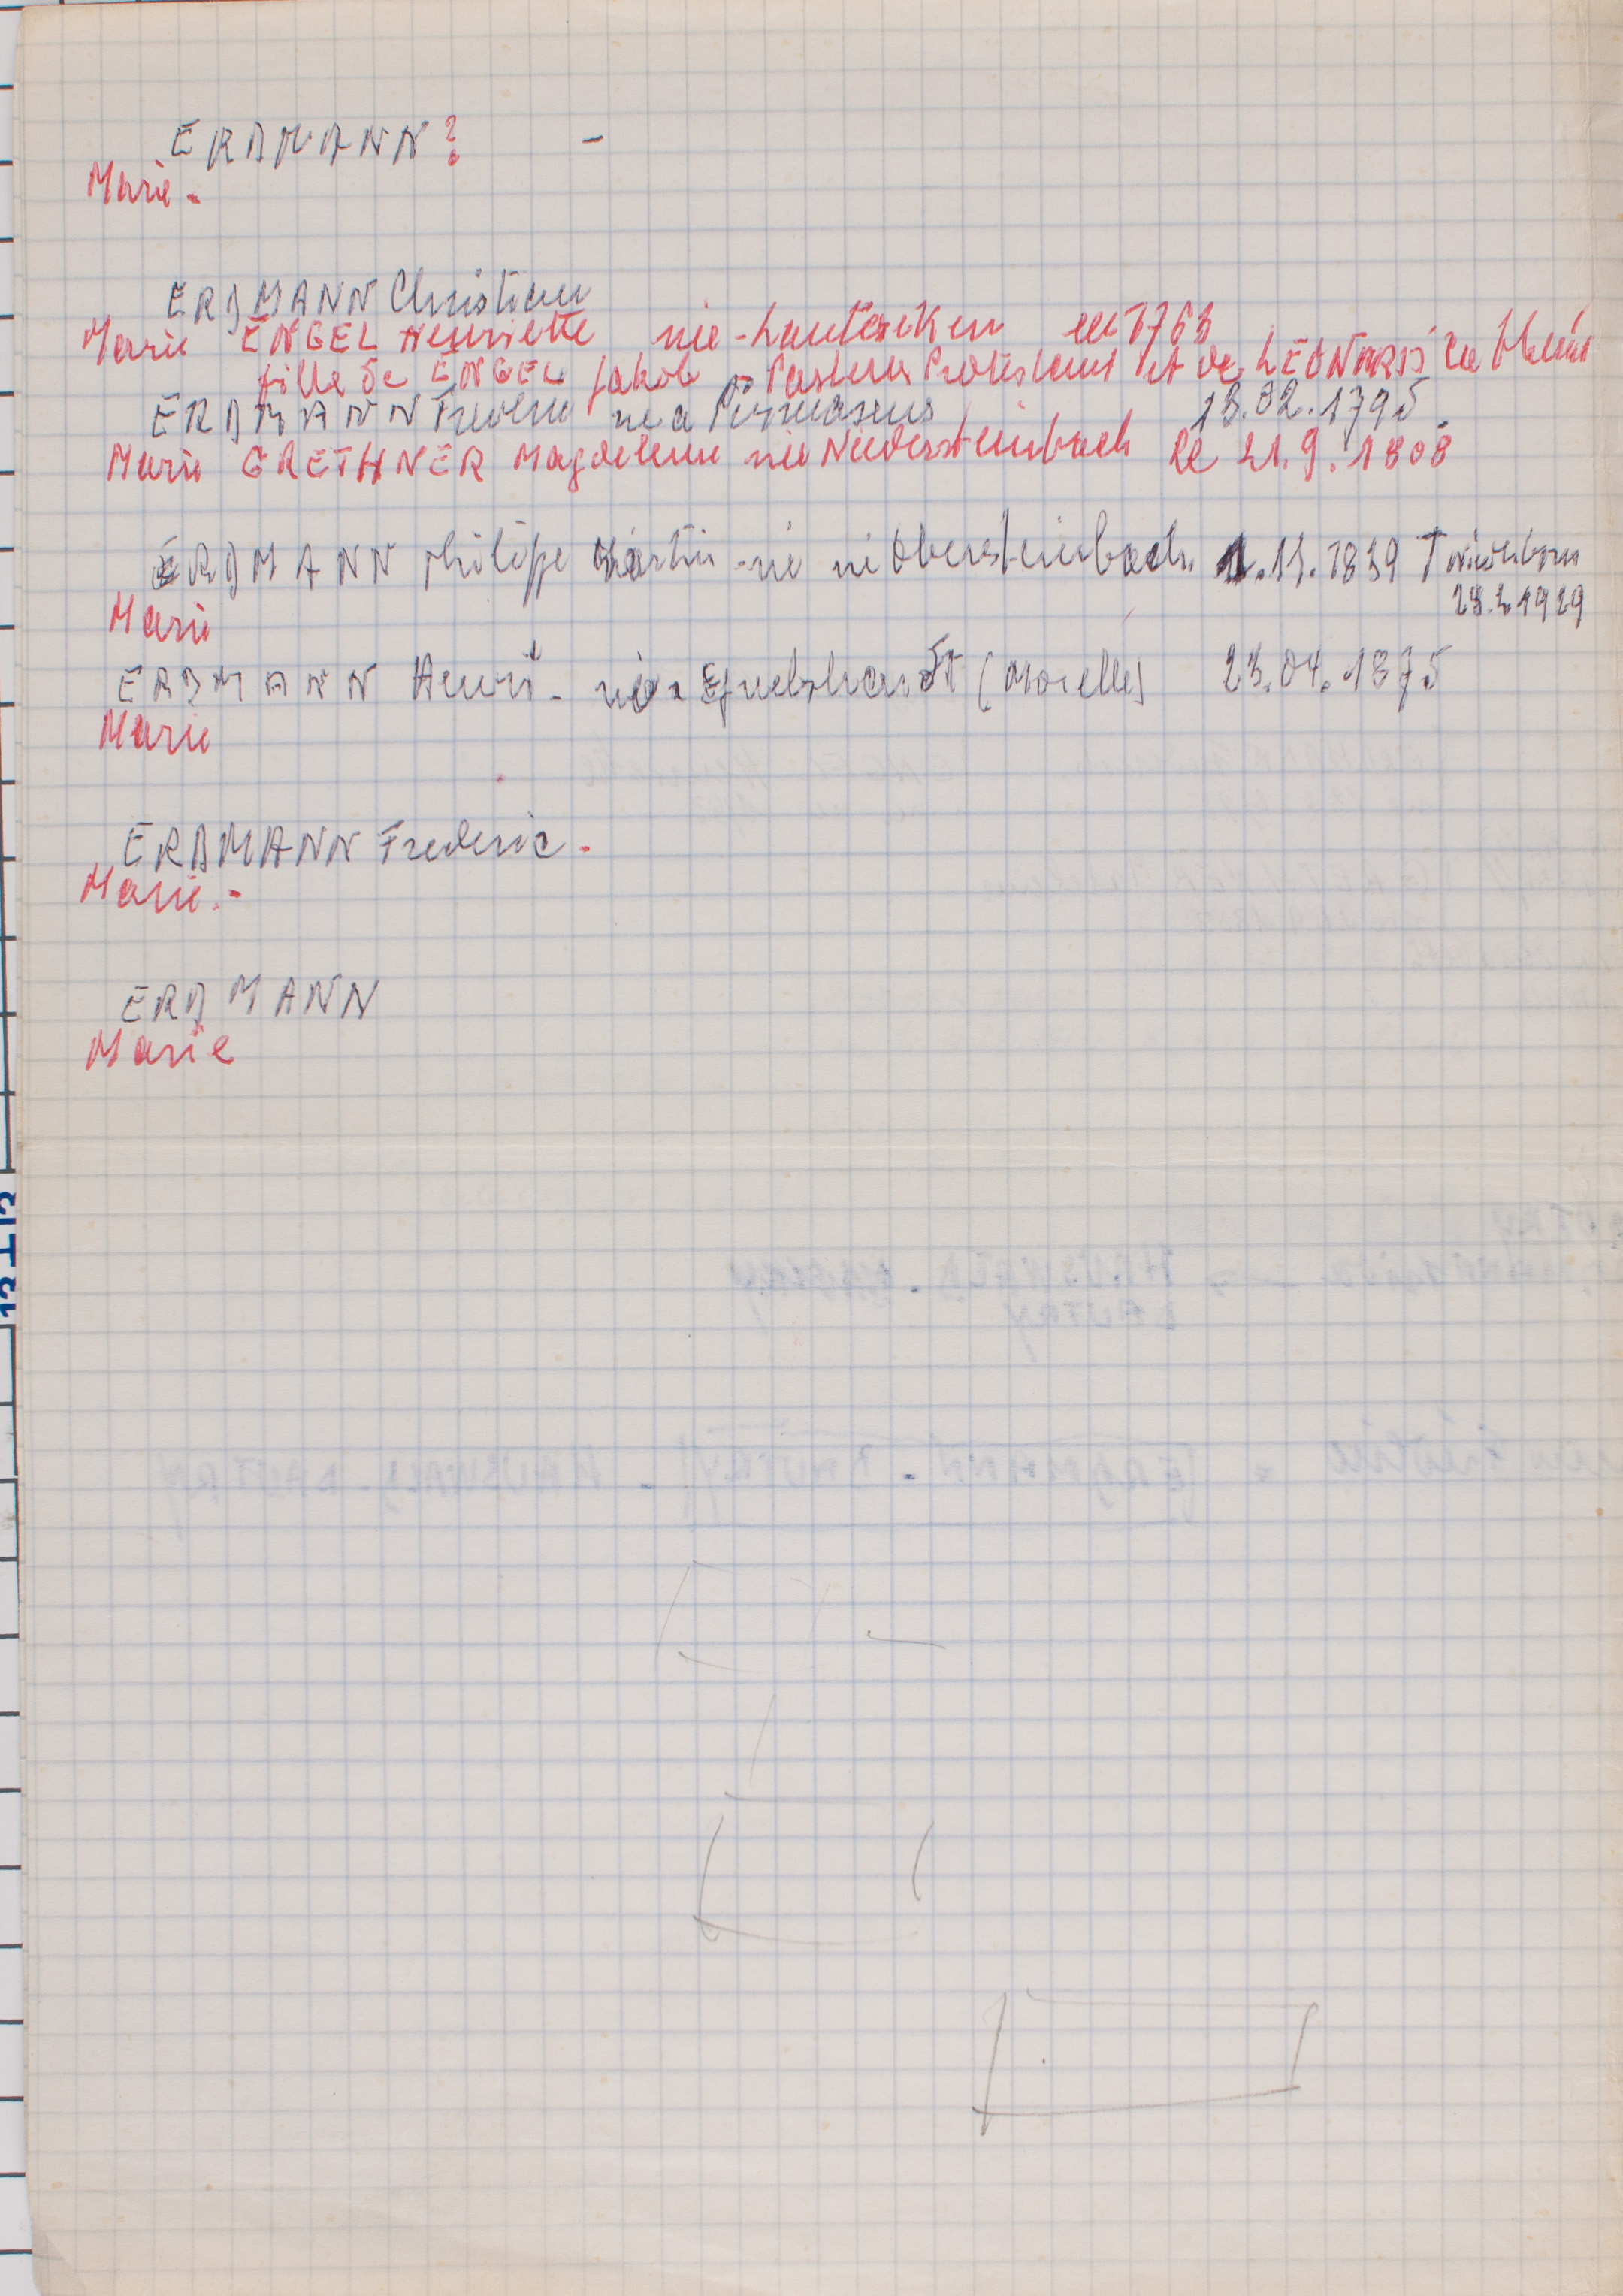 ERDMANN ? -
Marie -
ERDMANN Christian
Marie ENGEL Henriette née - Lautereken en 1763
fille de ENGEL Jakob - Pasteur Protestant et de LEONARD
ERDMANN né a Pirmasens 13.02.1795
Marie GRETHNER Magdelene née Niedersteinbach le 21.9.1808
ERDMANN Philippe Martin - né Obersteinbach .11.1839 † Niederbronn
28.2.1929
Marie
ERDMANN Henri - né a Eguelshardt (Moselle) 23.04.1875
Marie
ERDMANN Frederic -
Marie. -
ERDMANN
Marie